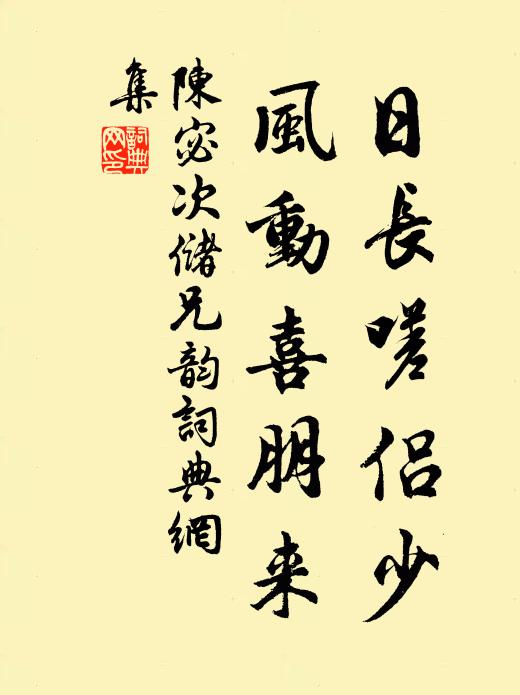 日長嗟侶少
風動喜朋来
陳宓次儲兄韵詞典網
集
詞典
网印